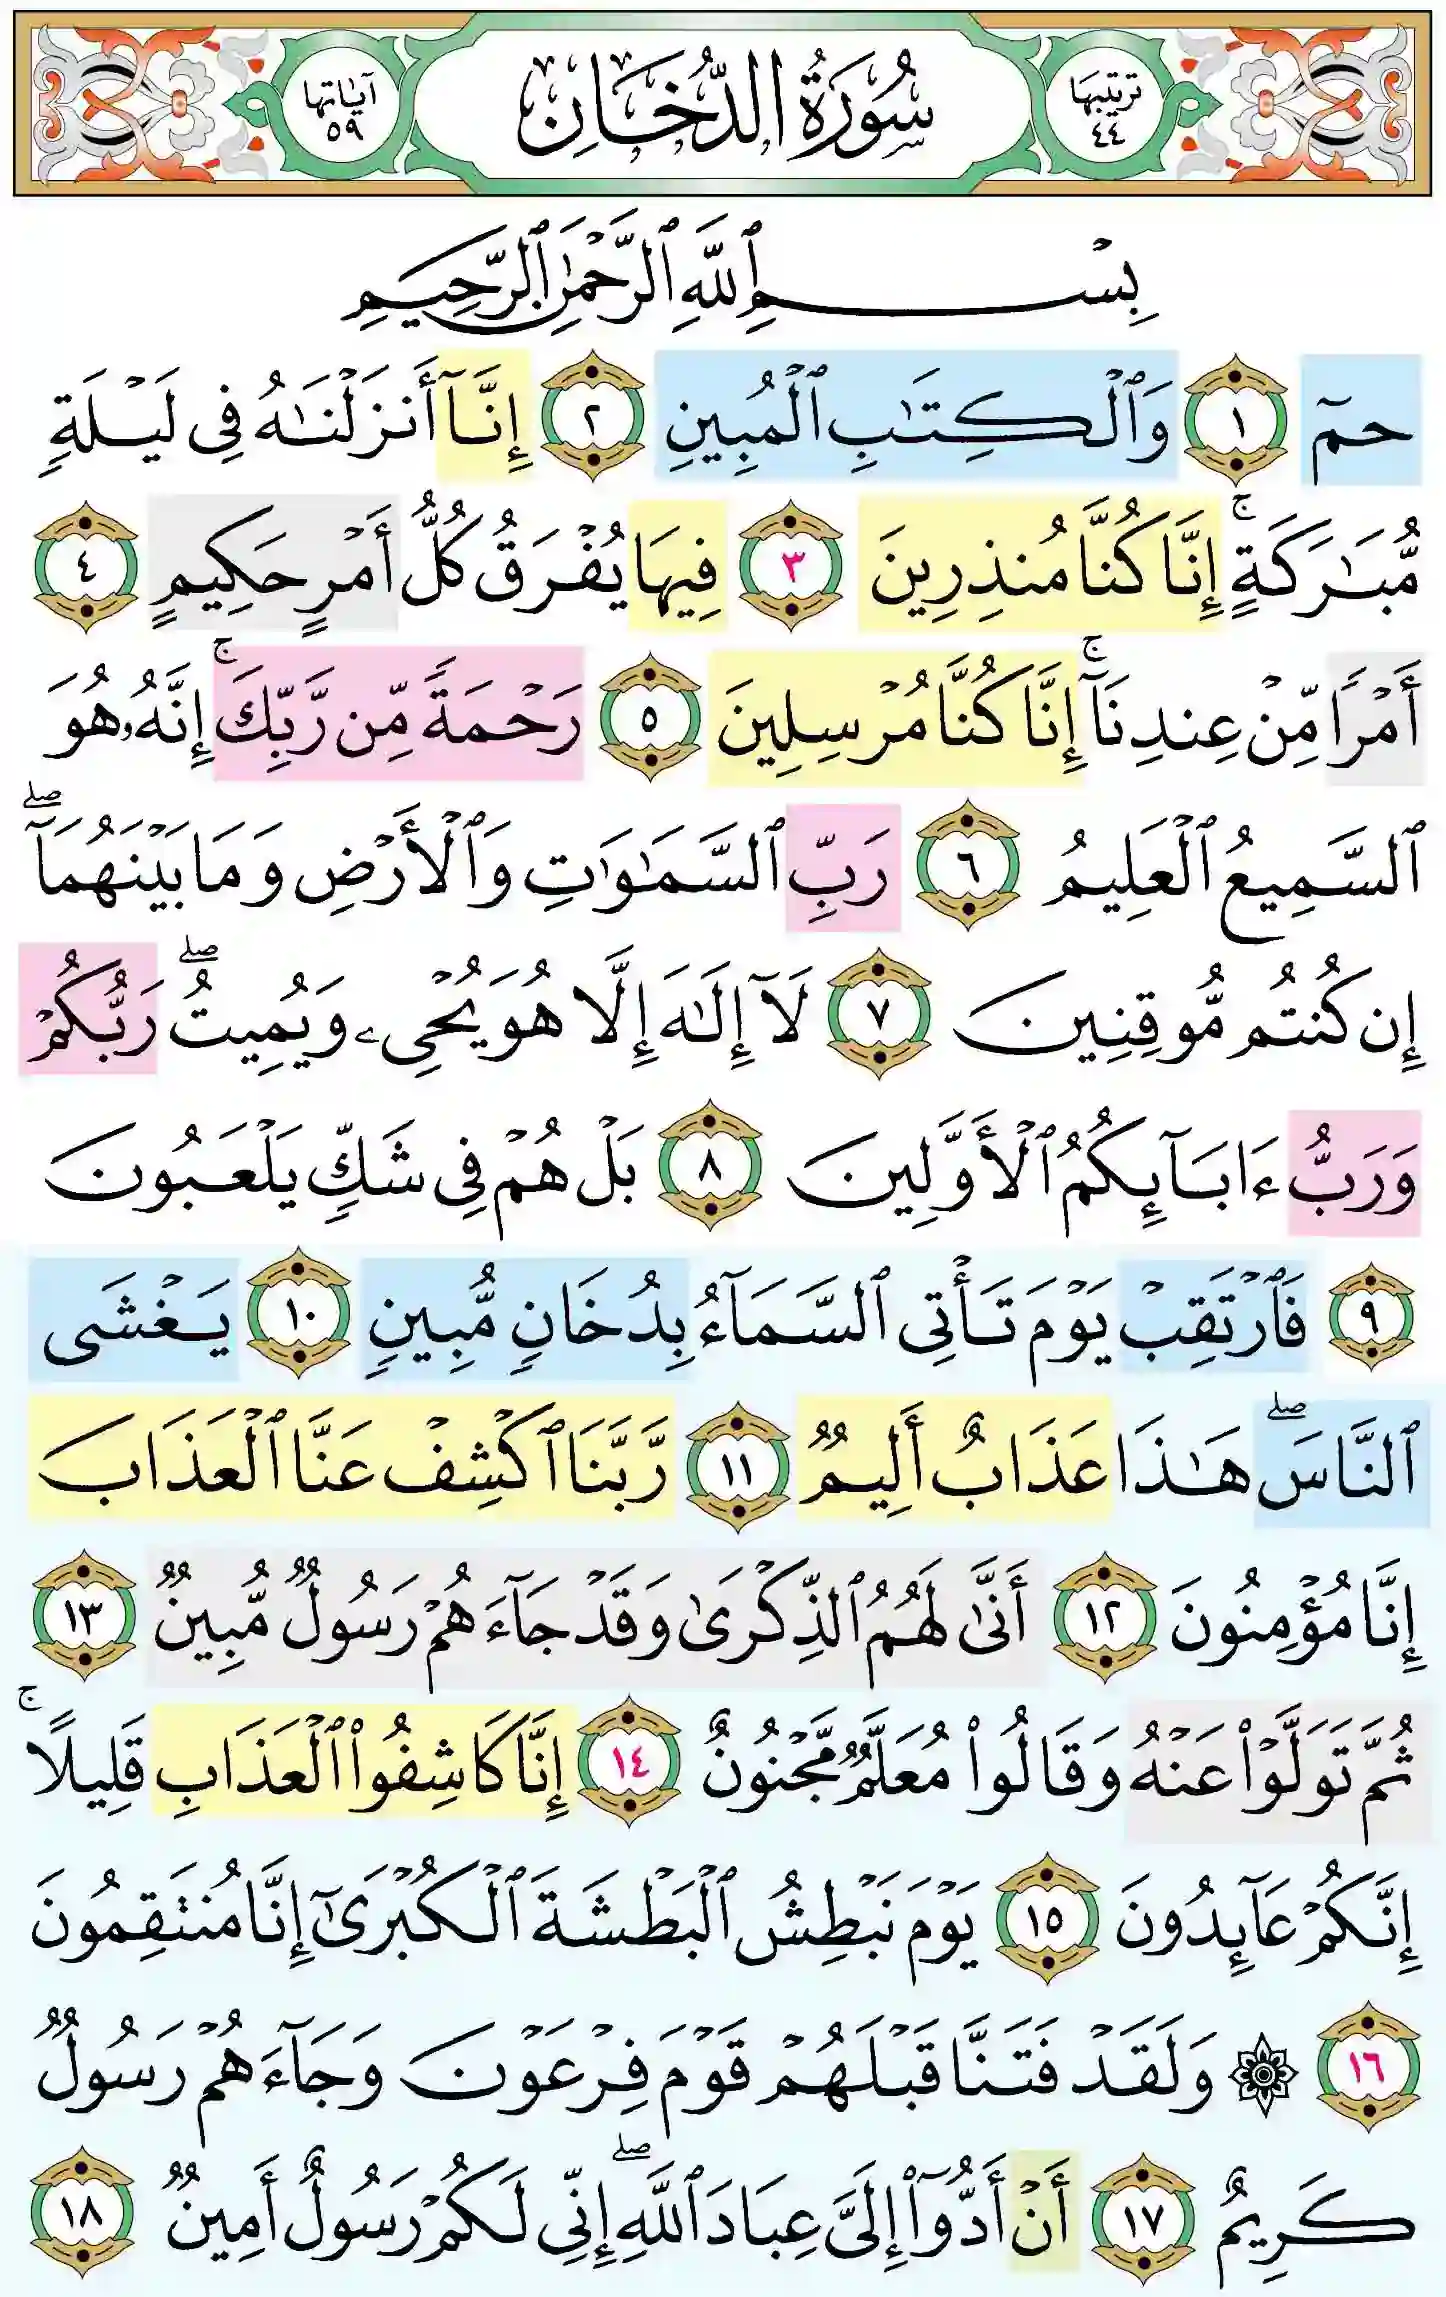 ترتيبها ٤٤
سُورَةُ الدُّخَانِ
آياتها ٥٩
بِسْمِ ٱللَّهِ ٱلرَّحْمَٰنِ ٱلرَّحِيمِ
حمٓ ١ وَٱلْكِتَٰبِ ٱلْمُبِينِ ٢ إِنَّآ أَنزَلْنَٰهُ فِى لَيْلَةٍ
مُّبَٰرَكَةٍ ۚ إِنَّا كُنَّا مُنذِرِينَ ٣ فِيهَا يُفْرَقُ كُلُّ أَمْرٍ حَكِيمٍ ٤
أَمْرًا مِّنْ عِندِنَآ ۚ إِنَّا كُنَّا مُرْسِلِينَ ٥ رَحْمَةً مِّن رَّبِّكَ ۚ إِنَّهُۥ هُوَ
ٱلسَّمِيعُ ٱلْعَلِيمُ ٦ رَبِّ ٱلسَّمَٰوَٰتِ وَٱلْأَرْضِ وَمَا بَيْنَهُمَآ ۖ
إِن كُنتُم مُّوقِنِينَ ٧ لَآ إِلَٰهَ إِلَّا هُوَ يُحْىِۦ وَيُمِيتُ ۖ رَبُّكُمْ
وَرَبُّ ءَابَآئِكُمُ ٱلْأَوَّلِينَ ٨ بَلْ هُمْ فِى شَكٍّ يَلْعَبُونَ
٩ فَٱرْتَقِبْ يَوْمَ تَأْتِى ٱلسَّمَآءُ بِدُخَانٍ مُّبِينٍ ١٠ يَغْشَى
ٱلنَّاسَ ۖ هَٰذَا عَذَابٌ أَلِيمٌ ١١ رَّبَّنَا ٱكْشِفْ عَنَّا ٱلْعَذَابَ
إِنَّا مُؤْمِنُونَ ١٢ أَنَّىٰ لَهُمُ ٱلذِّكْرَىٰ وَقَدْ جَآءَهُمْ رَسُولٌ مُّبِينٌ ١٣
ثُمَّ تَوَلَّوْا۟ عَنْهُ وَقَالُوا۟ مُعَلَّمٌ مَّجْنُونٌ ١٤ إِنَّا كَاشِفُوا۟ ٱلْعَذَابِ قَلِيلًا ۚ
إِنَّكُمْ عَآئِدُونَ ١٥ يَوْمَ نَبْطِشُ ٱلْبَطْشَةَ ٱلْكُبْرَىٰٓ إِنَّا مُنتَقِمُونَ
١٦ ۞ وَلَقَدْ فَتَنَّا قَبْلَهُمْ قَوْمَ فِرْعَوْنَ وَجَآءَهُمْ رَسُولٌ
كَرِيمٌ ١٧ أَنْ أَدُّوٓا۟ إِلَىَّ عِبَادَ ٱللَّهِ ۖ إِنِّى لَكُمْ رَسُولٌ أَمِينٌ ١٨